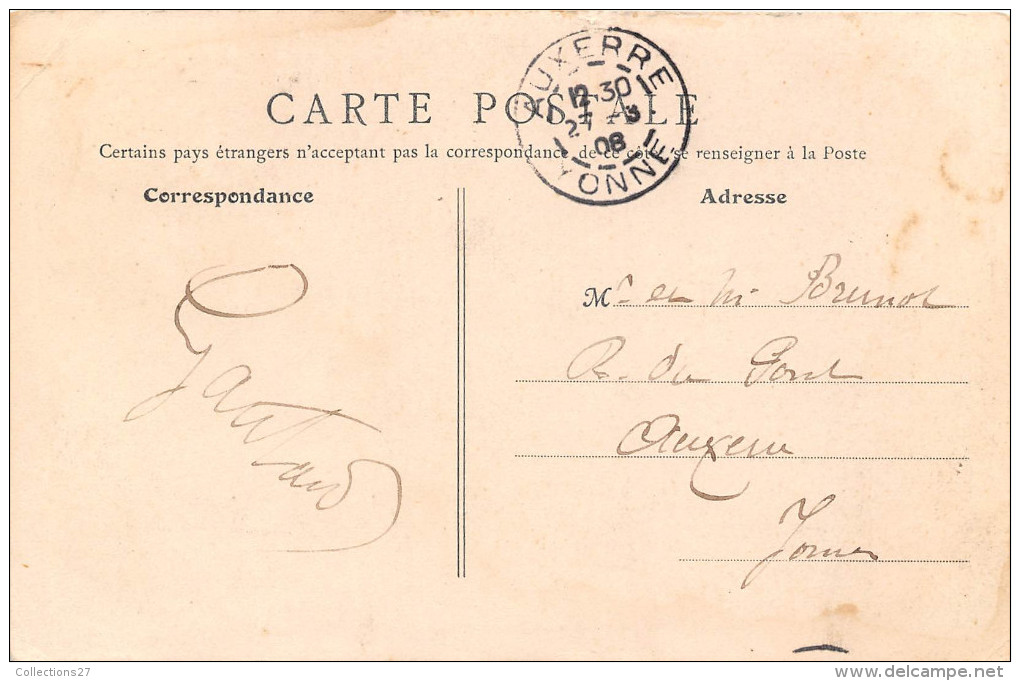 AUXERRE
12 30
27 3
08
YONNE
CARTE POSTALE
Certains pays étrangers n'acceptant pas la correspondance de ce côté, se renseigner à la Poste
Correspondance
Adresse
Mr et Me Brunot
R. du Pont
Auxerre
Yonne
Collections27
www.delcampe.net